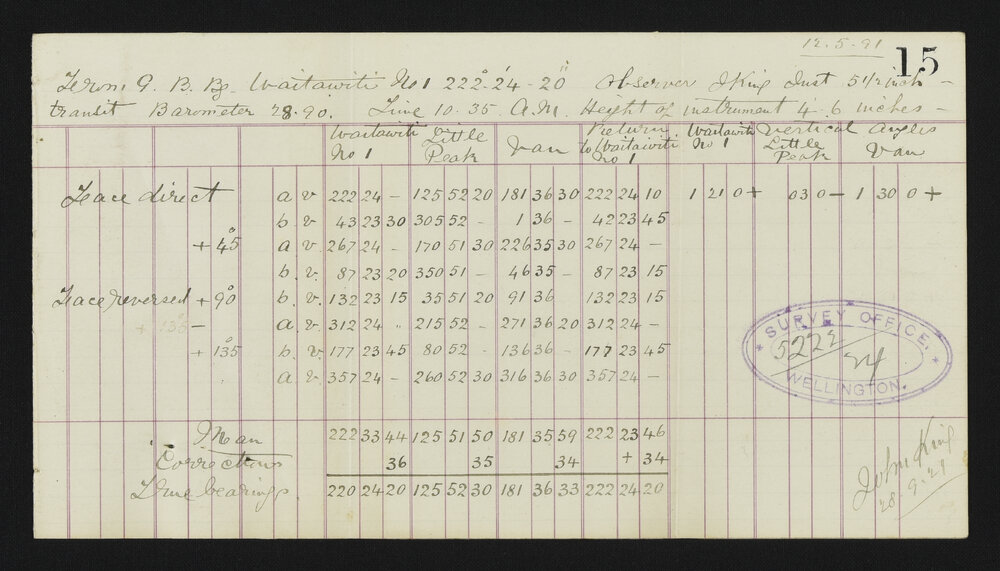 12.5.91
15
From G. B. B. Waitawiti No 1 222°.24'-20" Observer J King Inst 5 1/2 inch -
transit Barometer 28.90. Time 10.35 A.M. Height of instrument 4.6 inches -
Waitawiti No 1 Little Peak Van Return to Waitawiti No 1 Waitawiti No 1 Vertical Angles Little Peak Van
Face direct a v. 222 24 - 125 52 20 181 36 30 222 24 10 1 21 0 + 03 0 - 1 30 0 +
b v. 43 23 30 305 52 - 1 36 - 42 23 45
+ 45° a v. 267 24 - 170 51 30 226 35 30 267 24 -
b. v. 87 23 20 350 51 - 46 35 - 87 23 15
Face reversed + 90° b. v. 132 23 15 35 51 20 91 36 132 23 15
+ 135 - a v. 312 24 " 215 52 - 271 36 20 312 24 -
+ 135° b. v. 177 23 45 80 52 - 136 36 - 177 23 45
a v. 357 24 - 260 52 30 316 36 30 357 24 -
SURVEY OFFICE,
5222
24
WELLINGTON.
Mean 222 33 44 125 51 50 181 35 59 222 23 46
Corrections 36 35 34 + 34
True bearings 220 24 20 125 52 30 181 36 33 222 24 20
John King
28.9.21